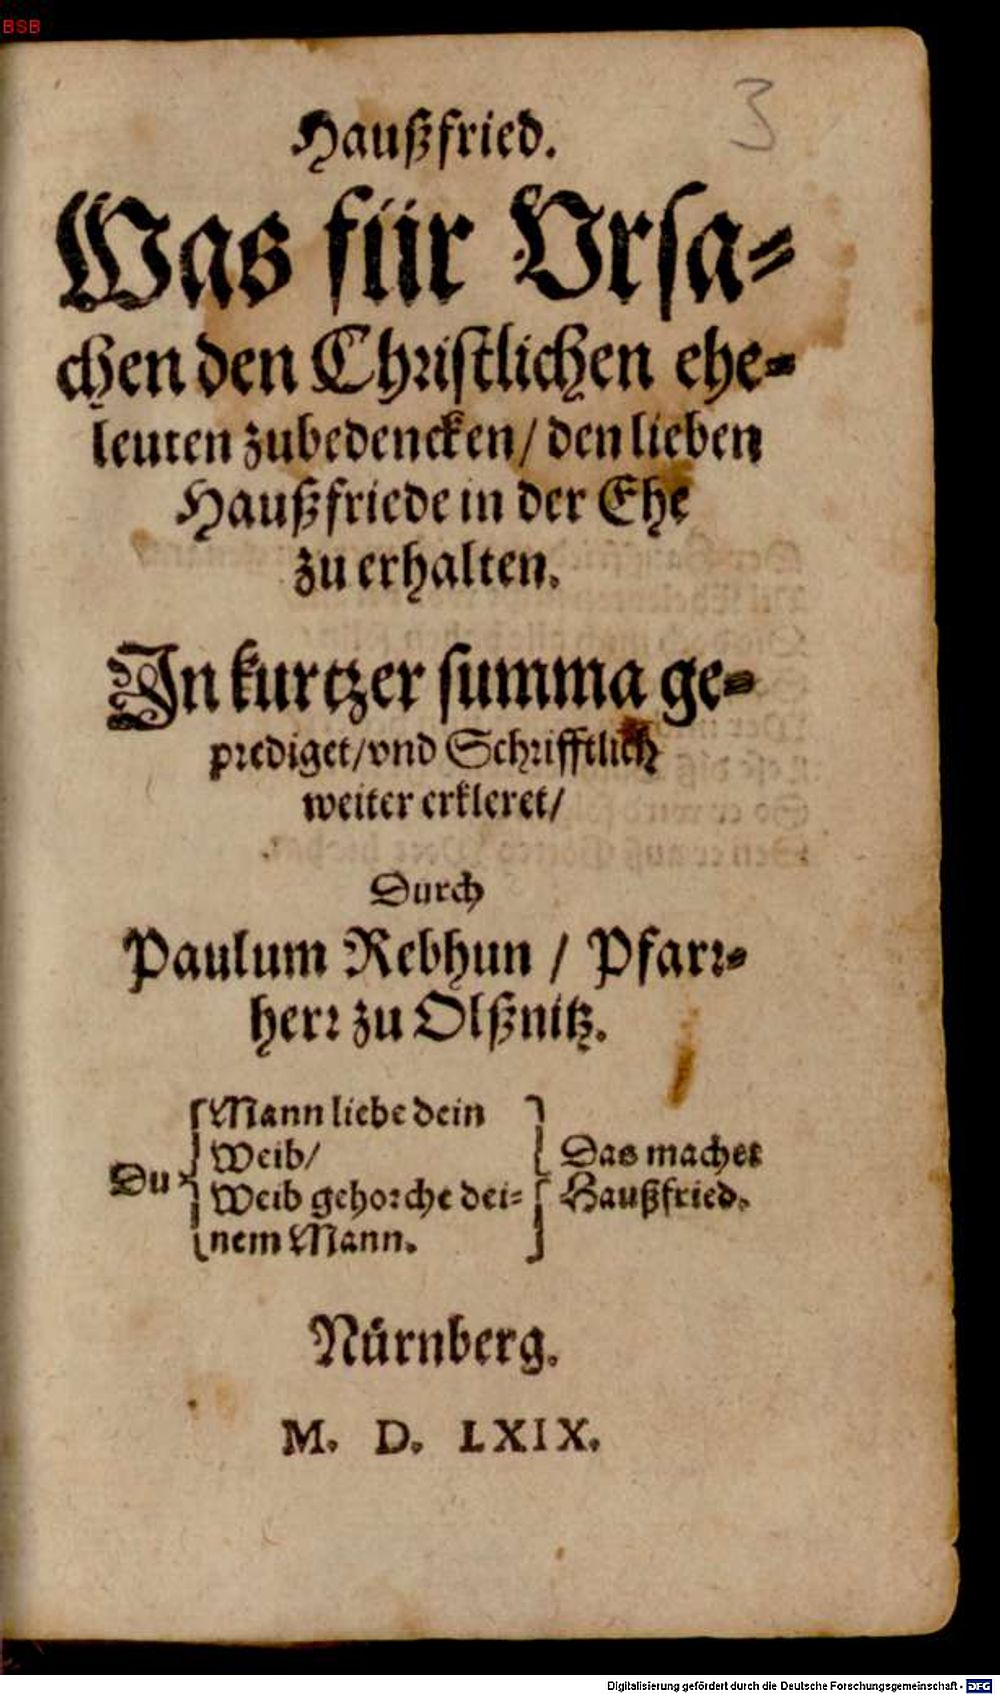 BSB
3
Haußfried.
Was für Vrsa-
chen den Christlichen ehe-
leuten zubedencken/ den lieben
Haußfriede in der Ehe
zu erhalten.
In kurtzer summa ge-
prediget/ vnd Schrifftlich
weiter erkleret/
Durch
Paulum Rebhun / Pfarr-
herr zu Olßnitz.
Mann liebe dein
Weib/
Du
Weib gehorche dei-
nem Mann.
Das machet
Haußfried.
Nürnberg.
M. D. LXIX.
Digitalisierung gefördert durch die Deutsche Forschungsgemeinschaft - DFG